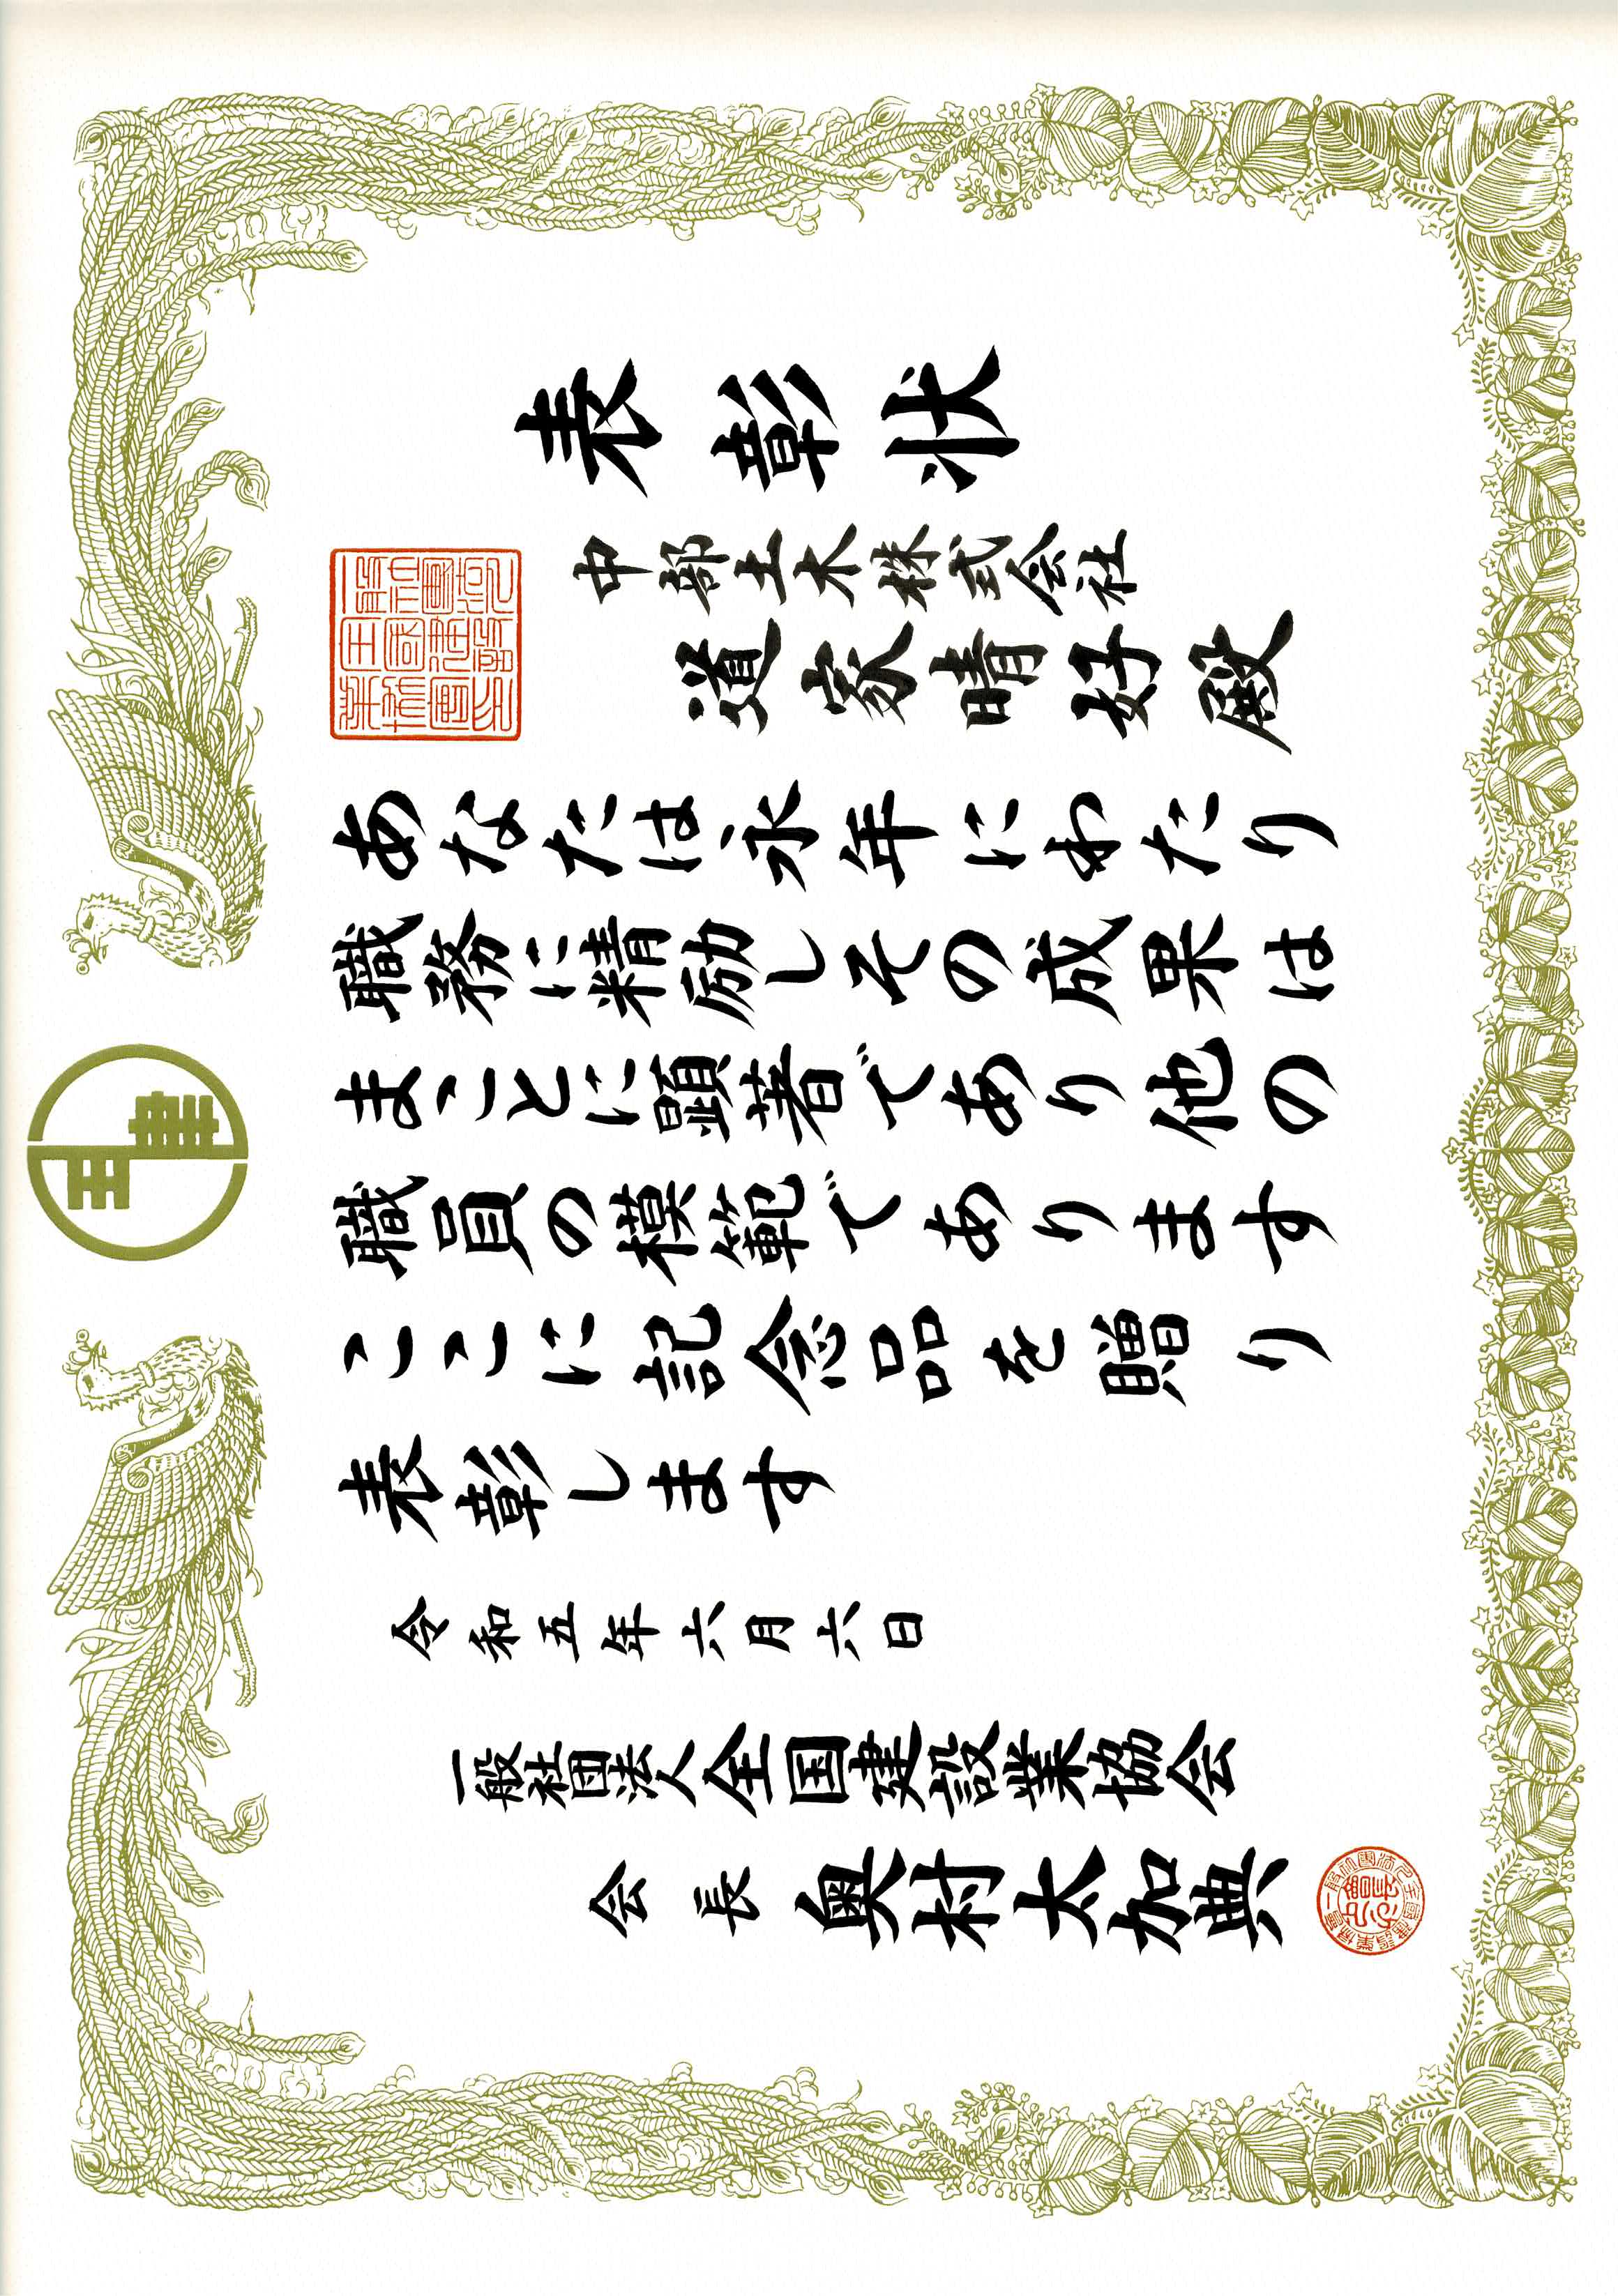 表彰状
中部土木株式会社
道家晴好殿
あなたは永年にわたり
職務に精励しその成果は
まことに顕著であり他の
職員の模範であります
ここに記念品を贈り
表彰します
令和五年六月六日
一般社団法人全国建設業協会
会長 奥村太加典